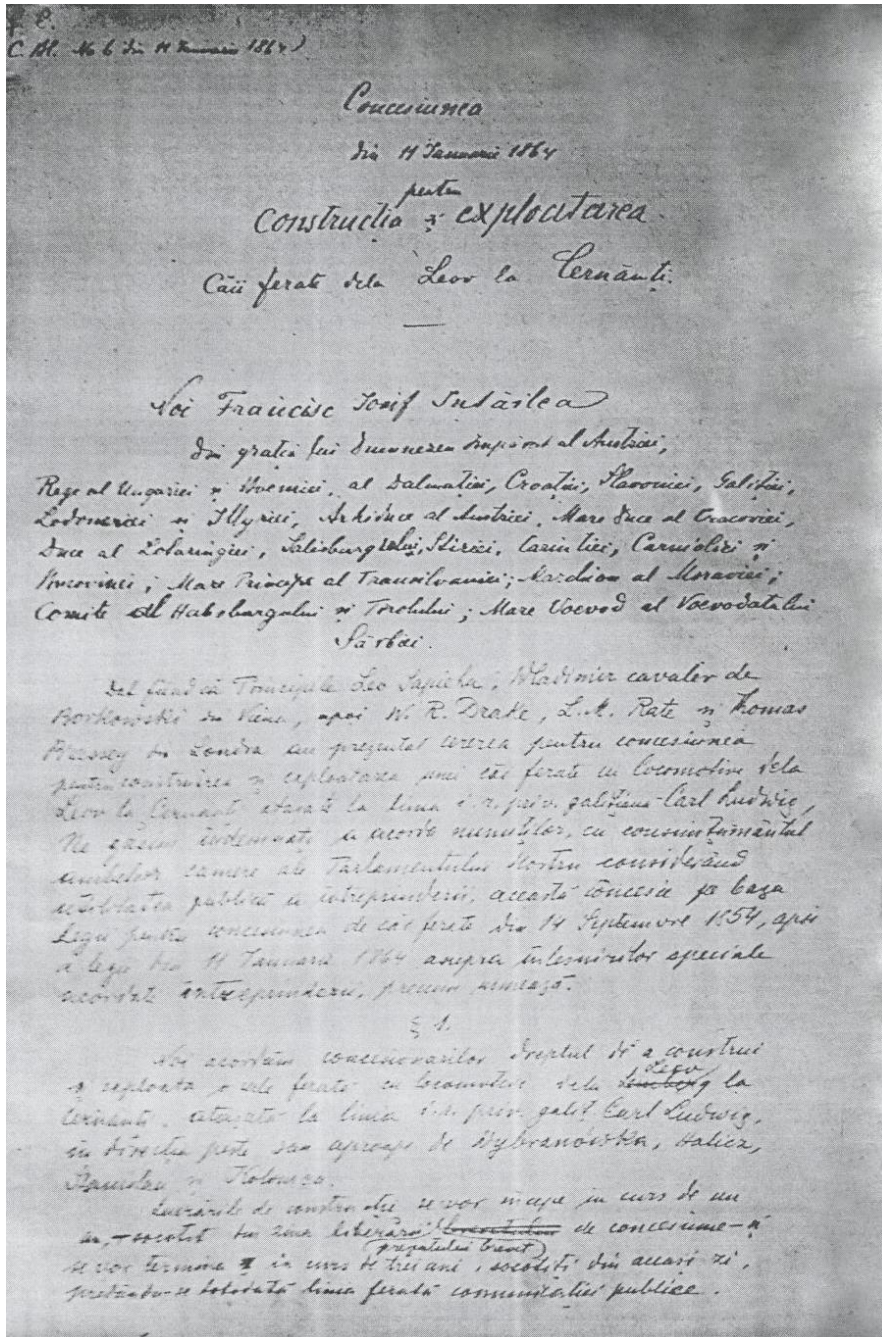 f. e.
C. Bl. No 6 din 11 Ianuarie 1864)
Concesiunea
din 11 Ianuarie 1864
pentru
Construcția și exploatarea
Căii ferate dela Leov la Cernăuți.
Noi Francisc Iosif Întâilea
din grația lui Dumnezeu Împărat al Austriei,
Rege al Ungariei și Boemiei, al Dalmației, Croației, Slavoniei, Galiției,
Lodomeriei și Illyriei, Arhiduce al Austriei, Mare Duce al Cracoviei,
Duce al Lotaringiei, Salisburgului, Stiriei, Carintiei, Carnioliei și
Bucovinei; Mare Principe al Transilvaniei; Marchion al Moraviei;
Comite al Habsburgului și Tirolului; Mare Voevod al Voevodatului
Sârbiei.
Dat fiind că Principele Leo Sapieha, Wladimir cavaler de
Borkowski din Viena, apoi W. R. Drake, L. M. Rate și Thomas
Brassey din Londra au prezentat cererea pentru concesiunea
pentru construirea și exploatarea unei căi ferate cu locomotive dela
Leov la Cernăuți atașată la linia c. r. priv. galițiană Carl Ludwig,
Ne găsim îndemnați a acorda numiților, cu consimțământul
ambelor camere ale Parlamentului Nostru considerând
utilitatea publică a întreprinderii, această concesie pe baza
Legii pentru concesiunea de căi ferate din 14 Septemvre 1854, apoi
a legii din 11 Ianuarie 1864 asupra înlesnirilor speciale
acordate întreprinderii, precum urmează:
§ 1.
Noi acordăm concesionarilor dreptul de a construi
și exploata o cale ferată cu locomotive dela Leov la
Cernăuți, atașată la linia c. r. priv. galiț. Carl Ludwig,
în direcția peste sau aproape de Wybranówska, Halicz,
Stanislau și Kolomea.
Lucrările de construcție se vor începe în curs de un
an, – socotit din ziua liberării prezentului brevet de concesiune – și
se vor termina în curs de trei ani, socotiți din aceași zi,
predându-se totodată linia ferată comunicației publice.